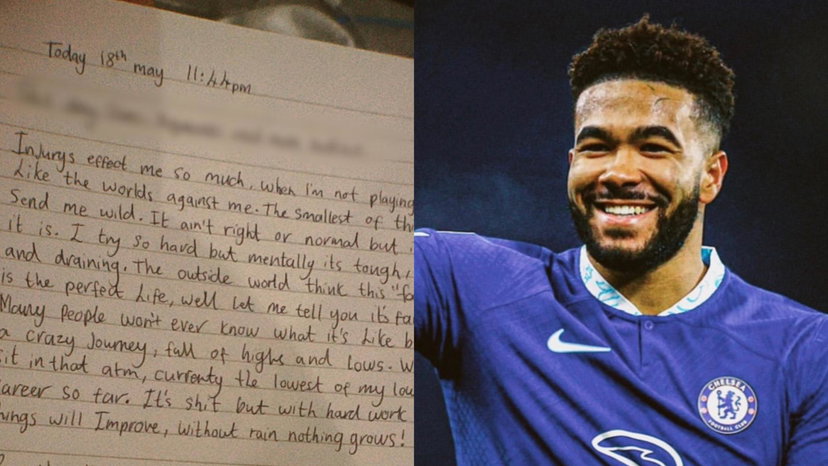 Today 18th may 11:44pm
Injurys effect me so much, when I'm not playing
Like the worlds against me. The smallest of th
Send me wild. It ain't right or normal but
it is. I try so hard but mentally its tough,
and draining. The outside world think this "fo
is the perfect life, well let me tell you it's fa
Many People won't ever know what it's like b
a crazy Journey, full of highs and lows. W
sit in that atm, currenty the lowest of my low
career so far. It's shit but with hard work
hings will Improve, without rain nothing grows!
CHELSEA
FOOTBALL CLUB